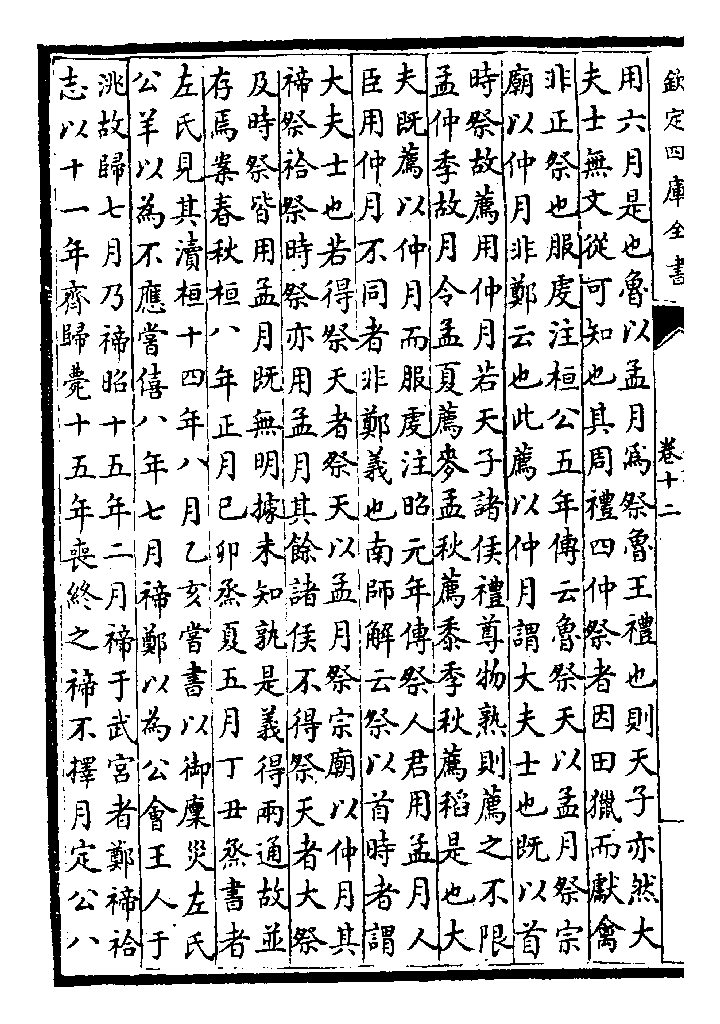 欽定四庫全書
卷十二
用六月是也魯以孟月爲祭魯王禮也則天子亦然大
夫士無文從可知也其周禮四仲祭者因田獵而獻禽
非正祭也服虔注桓公五年傳云魯祭天以孟月祭宗
廟以仲月非鄭云也此薦以仲月謂大夫士也既以首
時祭故薦用仲月若天子諸侯禮尊物熟則薦之不限
孟仲季故月令孟夏薦麥孟秋薦黍季秋薦稻是也大
夫既薦以仲月而服虔注昭元年傳祭人君用孟月人
臣用仲月不同者非鄭義也南師解云祭以首時者謂
大夫士也若得祭天者祭天以孟月祭宗廟以仲月其
禘祭祫祭時祭亦用孟月其餘諸侯不得祭天者大祭
及時祭皆用孟月既無明據未知孰是義得兩通故並
存焉案春秋桓八年正月己卯烝夏五月丁丑烝書者
左氏見其瀆桓十四年八月乙亥嘗書以御廩災左氏
公羊以為不應嘗僖八年七月禘鄭以為公會王人于
洮故歸七月乃禘昭十五年二月禘于武宮者鄭禘祫
志以十一年齊歸薨十五年喪終之禘不擇月定公八